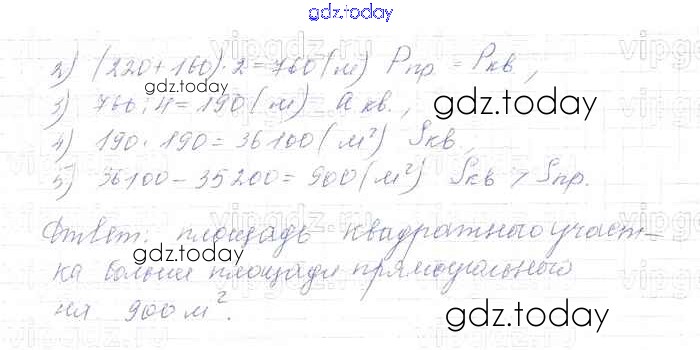 gdz.today
2) (220+160)·2=760(м) Pпр = Pкв,
3) 760:4=190(м) a кв.,
gdz.today
4) 190·190=36100(м²) Sкв,
5) 36100-35200=900(м²) Sкв > Sпр.
Ответ: площадь квадратного участ-
gdz.today
ка больше площади прямоугольного
на 900 м².
gdz.today
vipgdz.ru